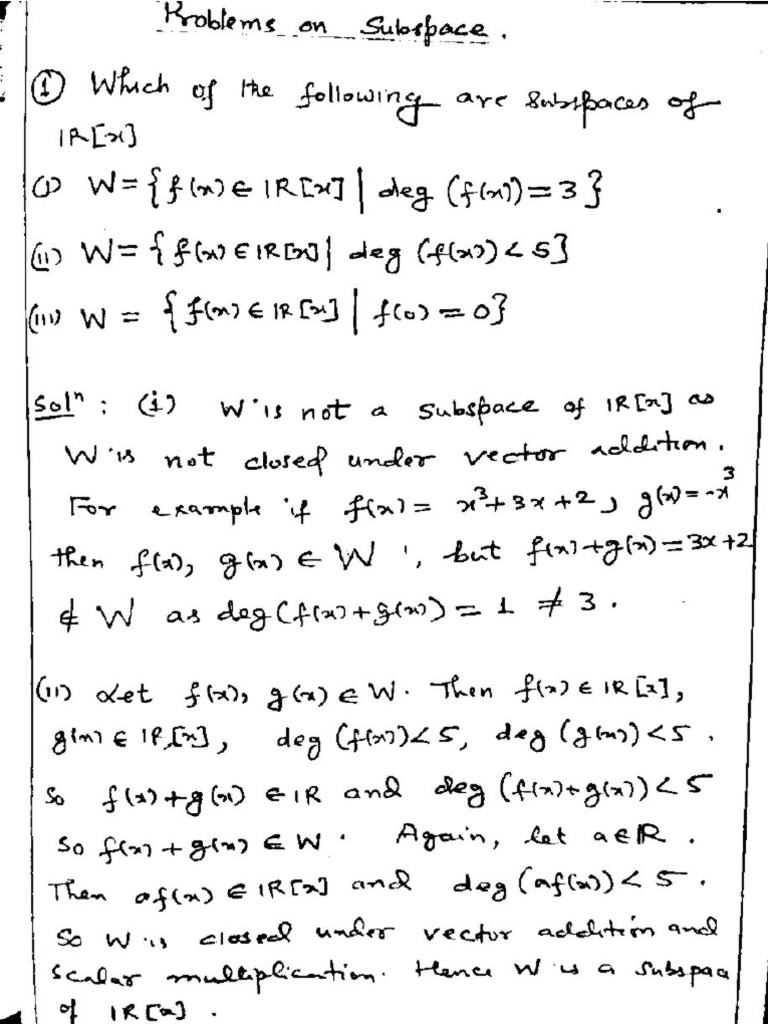 Problems on Subspace.
① Which of the following are subspaces of
IR[x]
(i) W = {f(x) ∈ IR[x] | deg (f(x)) = 3}
(ii) W = {f(x) ∈ IR[x] | deg (f(x)) < 5}
(iii) W = {f(x) ∈ IR[x] | f(0) = 0}
Solⁿ : (i) W is not a subspace of IR[x] as
W is not closed under vector addition.
For example if f(x) = x³+3x+2, g(x) = -x³
then f(x), g(x) ∈ W, but f(x)+g(x) = 3x+2
∉ W as deg(f(x)+g(x)) = 1 ≠ 3.
(ii) Let f(x), g(x) ∈ W. Then f(x) ∈ IR[x],
g(x) ∈ IR[x], deg (f(x)) < 5, deg (g(x)) < 5.
So f(x)+g(x) ∈ IR and deg (f(x)+g(x)) < 5
So f(x)+g(x) ∈ W. Again, let a ∈ IR.
Then af(x) ∈ IR[x] and deg (af(x)) < 5.
So W is closed under vector addition and
scalar multiplication. Hence W is a subspa
of IR[x].